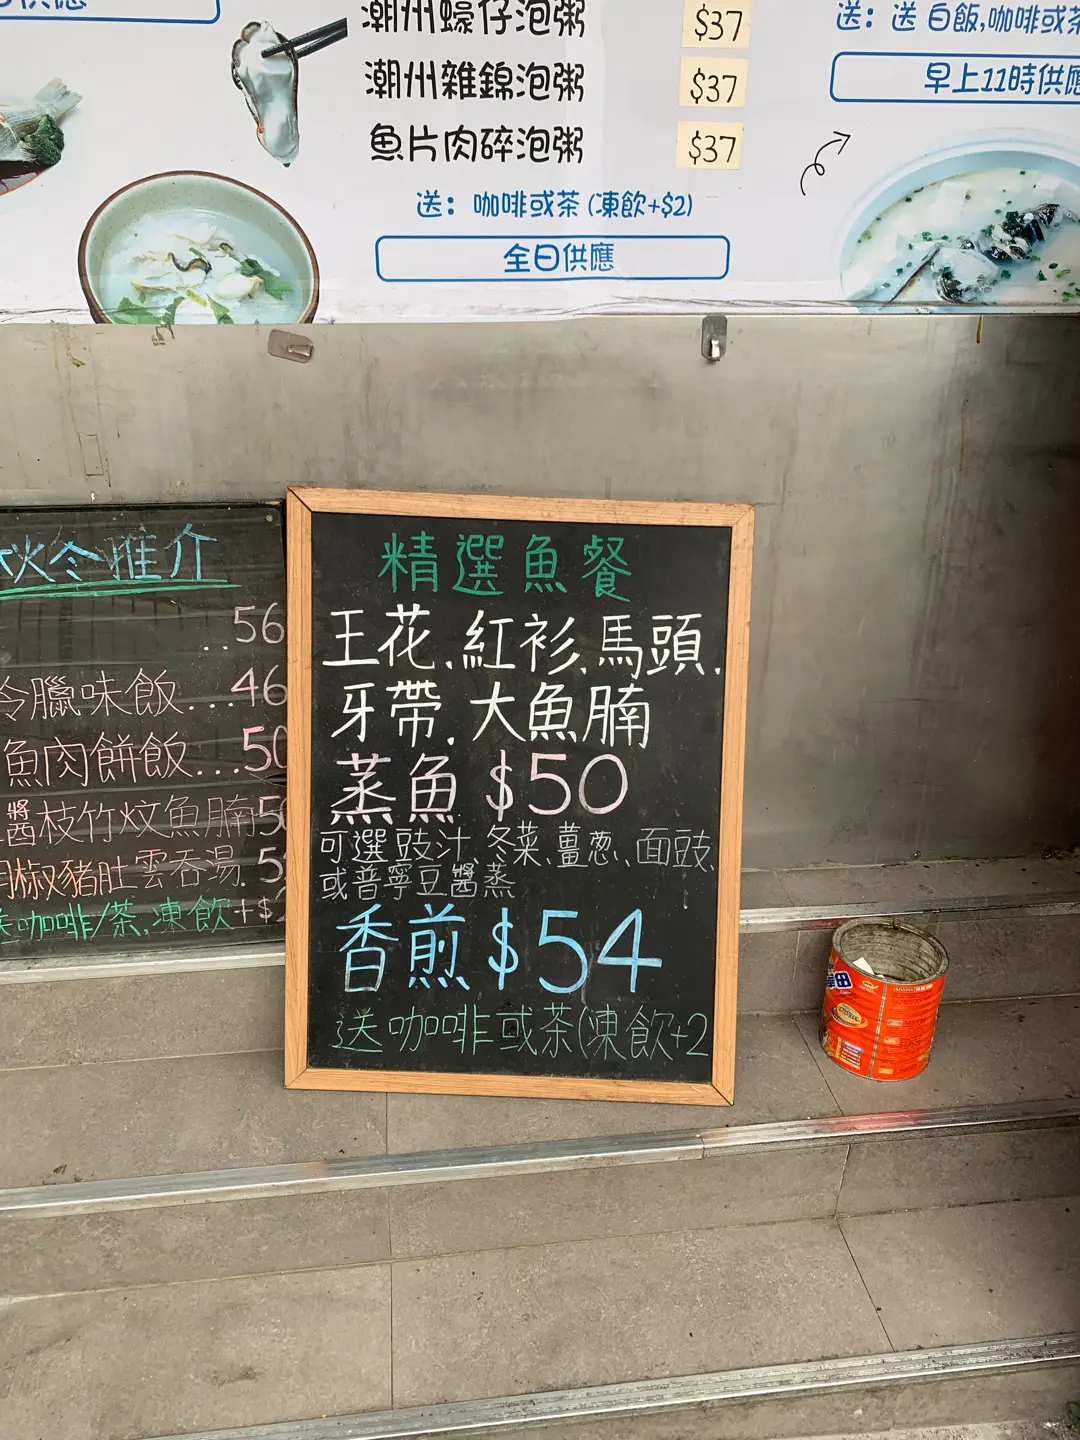 潮州蠔仔泡粥 $37
潮州雜錦泡粥 $37
魚片肉碎泡粥 $37
送：咖啡或茶 (凍飲+$2)
全日供應
供應
送：送 白飯,咖啡或茶
早上11時供應
秋冬推介
..56
臘味飯...46
魚肉餅飯...50
醬枝竹炆魚腩50
胡椒豬肚雲吞湯.5
送咖啡/茶,凍飲+$
精選魚餐
王花.紅衫.馬頭.
牙帶.大魚腩
蒸魚 $50
可選豉汁、冬菜、薑葱、面豉、
或普寧豆醬蒸
香煎 $54
送咖啡或茶(凍飲+2